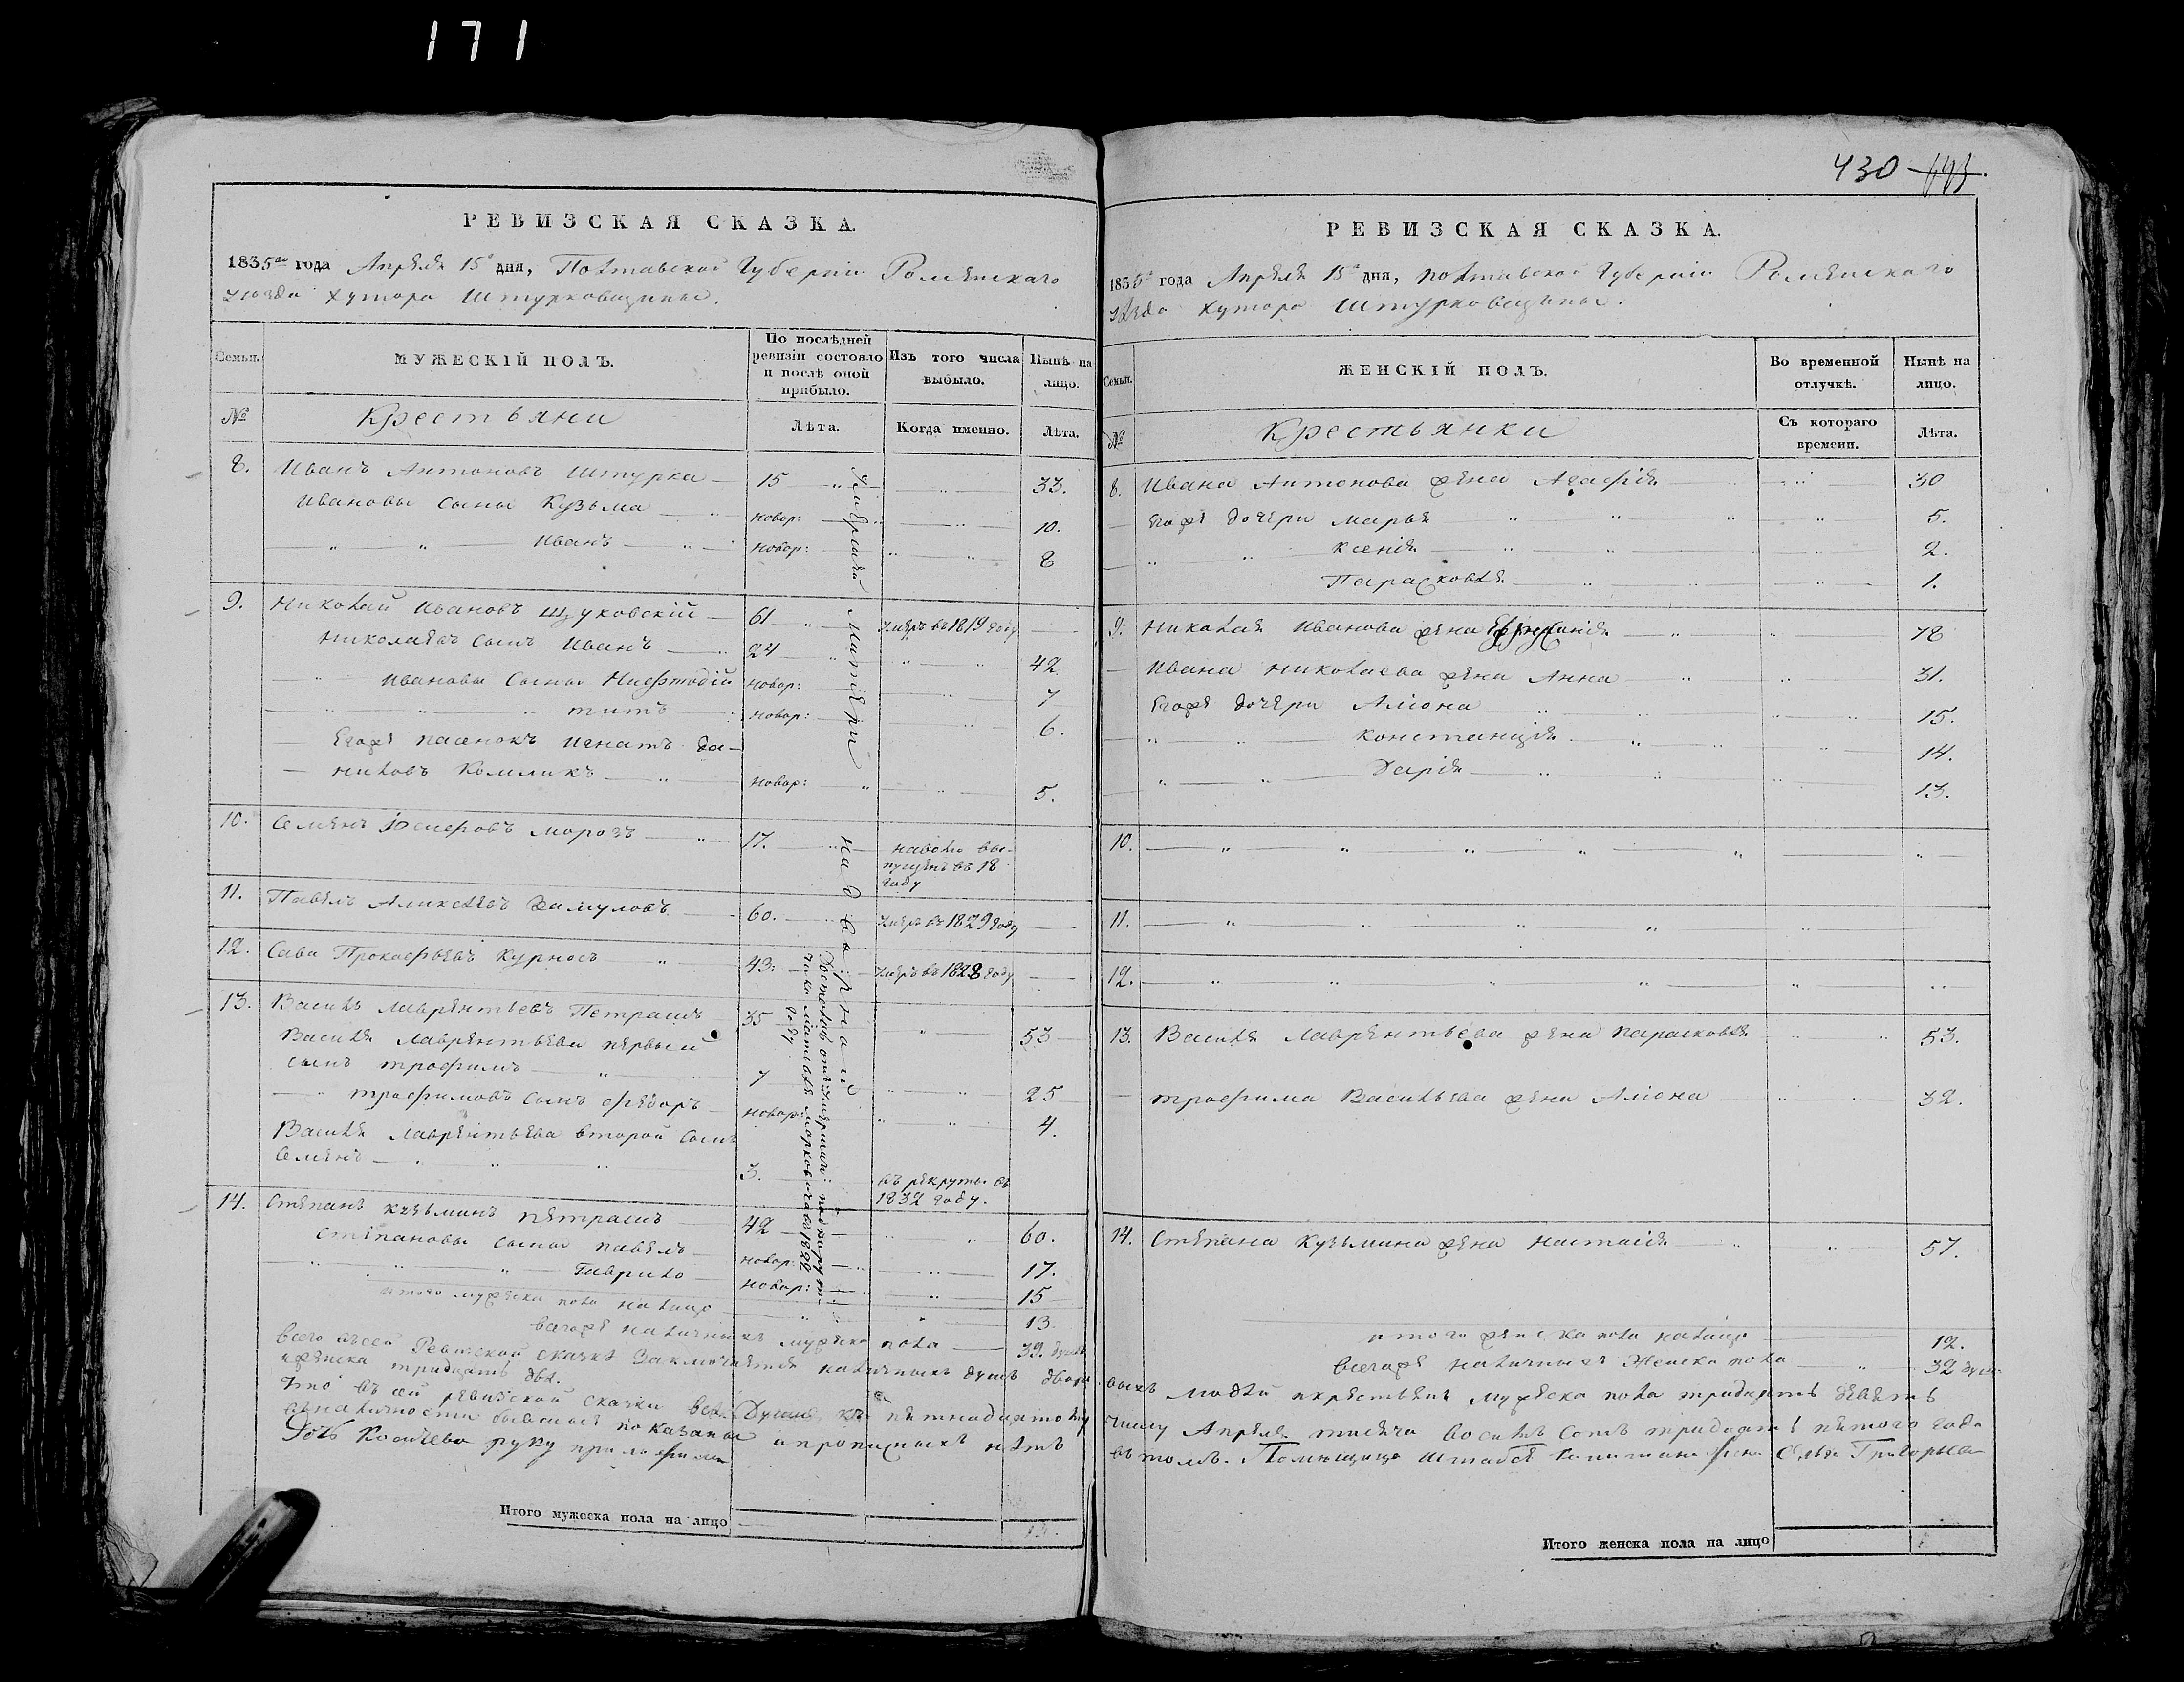 171
РЕВИЗСКАЯ СКАЗКА.
1835го года Апреля 15го дня, Полтавской Губернии Роменскаго
уезда хутора Штурковщины.
Семьи.
МУЖЕСКІЙ ПОЛЪ.
По послѣдней ревизіи состояло и послѣ оной прибыло.
Изъ того числа выбыло.
Нынѣ на лицо.
№
Крестьяни
Лѣта.
Когда именно.
Лѣта.
8. Иванъ Антоновъ Штурка 15 33.
Ивановы Сыны Кузьма новор: 10.
Иванъ новор: 8
9. Николай Ивановъ Щуковскій 61 умеръ въ 1819 году
Николаевъ сынъ Иванъ 24 42.
Ивановы Сыны новор: 7
титъ новор: 6.
Егоже пасенокъ Игнатъ Да-
ниловъ новор: 5.
10. Семенъ Морозъ 17. наволю вы-
пущенъ въ 18
году
11. Павелъ Алексеевъ 60. умеръ въ 1829 году
12. Сава Прокофьевъ Курносъ 43: умеръ въ 1828 году
13. Василь Лаврентьевъ Петрашъ 35 53
Василя Лаврентьева первый
сынъ трофимъ 7 25
трофимовъ сынъ федоръ новор: 4.
Василя Лаврентьева второй сынъ
Семенъ 3. въ рекруты въ
1832 году.
14. Степанъ Кузьминъ петрашъ 42 60.
Степановы сыны павелъ новор: 17.
Гаврило новор: 15
итого мужеска пола налицо 13.
всегоже наличныхъ мужеска пола 39. душъ
Умершей Матери
надворной
Достались отъ умершей
въ 1822
году
всего въсей Ревизской скачке Заключается наличныхъ душъ дворо
иженска тридцать две.
Что въ сей ревизской скачки все Души къ пятнадцатому
въналичности бывшие показаны апрописныхъ нетъ
руку приложила
Итого мужеска пола на лицо
13.
430 443.
РЕВИЗСКАЯ СКАЗКА.
1835 года Апреля 15го дня, полтавской Губернии Роменскаго
уезда хутора Штурковщины.
Семьи.
ЖЕНСКІЙ ПОЛЪ.
Во временной отлучкѣ.
Нынѣ на лицо.
№
Крестьянки
Съ котораго времени.
Лѣта.
8. Ивана Антонова жена Агафія 30
Егоже дочери марья 5.
Ксенія 2.
Парасковія 1.
9. Николая Иванова жена 78
Ивана николаева жена Анна 31.
Егоже дочери Аліона 15.
Констанція 14.
Дарія 13.
10.
11.
12.
13. Василя Лаврентьева жена парасковія 53.
трофима Васильева жена Аліона 32.
14. Степана Кузьмина жена настасія 57.
итого женска пола налицо 12.
всегоже наличныхъ Женска пола 32 душ
выхъ людей икрестьянъ мужеска пола тридцать девять
числу Апреля тысяча восемь сотъ тридцать пятого года
въ томъ. Помещица Штабсъ Капитанъ
Итого женска пола на лицо